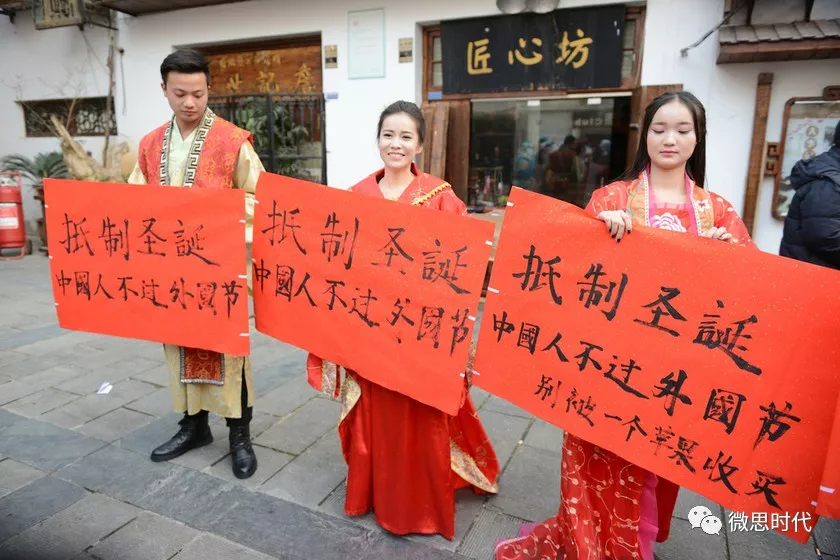 匠心坊
世記
抵制圣誕
中國人不过外國节
抵制圣誕
中國人不过外國节
抵制圣誕
中國人不过外國节
别被一个苹果收买
Club
微思时代